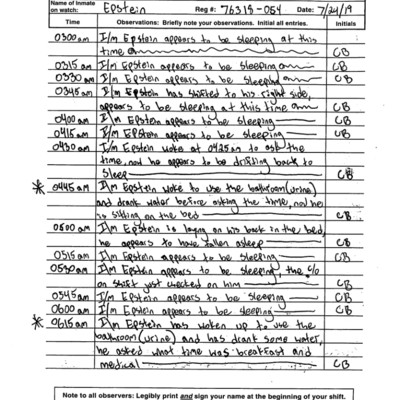 Name of Inmate
on watch: Epstein Reg #: 76318-054 Date: 7/24/19
Time Observations: Briefly note your observations. Initial all entries. Initials
0300am I/m Epstein appears to be sleeping at this
time CB
0315am I/m Epstein appears to be sleeping CB
0330am I/m Epstein appears to be sleeping CB
0345am I/m Epstein has shifted to his right side,
appears to be sleeping at this time CB
0400am I/m Epstein appears to be sleeping CB
0415am I/m Epstein appears to be sleeping CB
0430am I/m Epstein woke at 0425am to ask the
time, now he appears to be drifting back to
sleep CB
* 0445am I/m Epstein woke to use the bathroom (urine)
and drank water before asking the time, now he
is sitting on the bed CB
0500am I/m Epstein is laying on his back in the bed,
he appears to have fallen asleep CB
0515am I/m Epstein appears to be sleeping CB
0530am I/m Epstein appears to be sleeping, the c/o
on shift just checked on him CB
0545am I/m Epstein appears to be sleeping CB
0600am I/m Epstein appears to be sleeping CB
* 0615am I/m Epstein has woken up to use the
bathroom (urine) and has drank some water,
he asked what time was breakfast and
medical CB
Note to all observers: Legibly print and sign your name at the beginning of your shift.